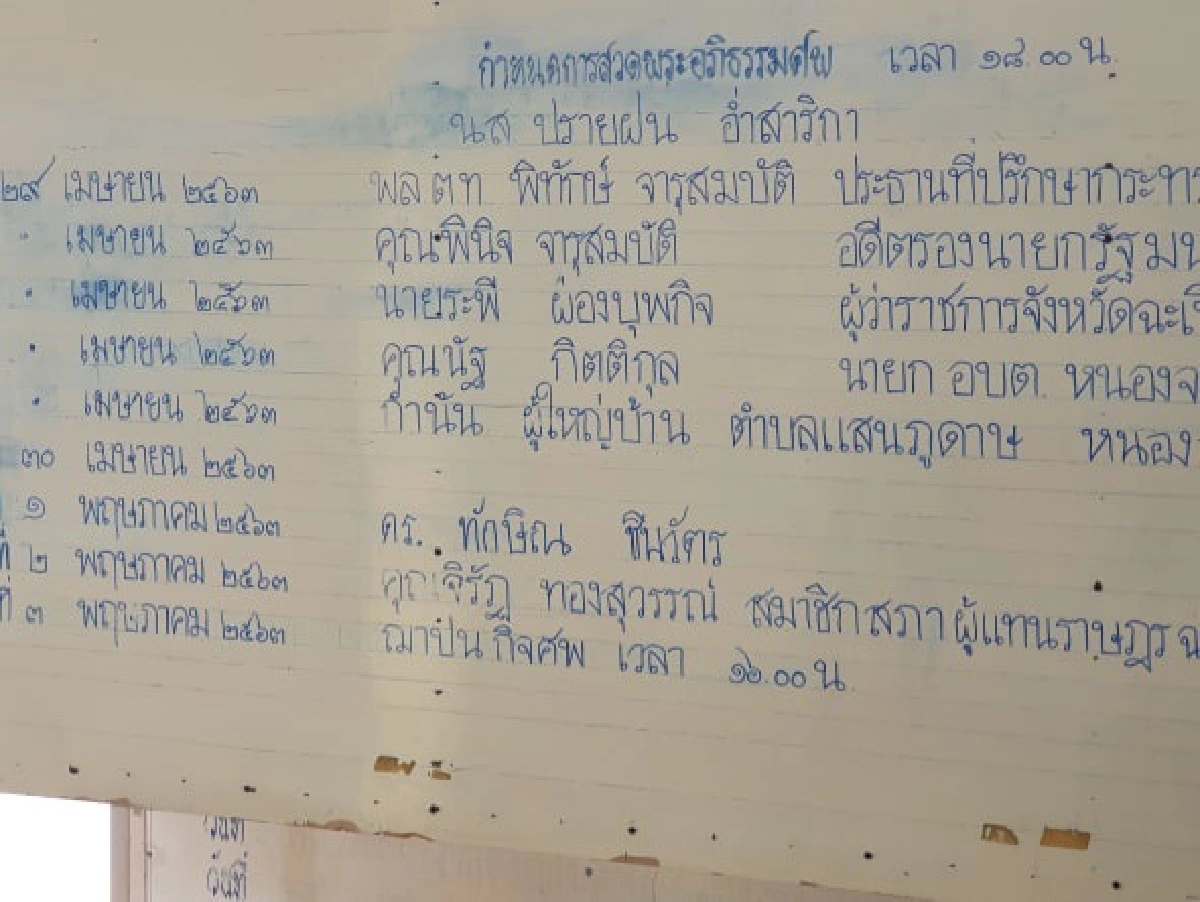 กำหนดการสวดพระอภิธรรมศพ เวลา ๑๘.๐๐ น.
นส ปรายฝน อ่ำสาริกา
๒๙ เมษายน ๒๕๖๓ พล ต ท พิทักษ์ จารุสมบัติ ประธานที่ปรึกษากระทร
" เมษายน ๒๕๖๓ คุณพินิจ จารุสมบัติ อดีตรองนายกรัฐมน
" เมษายน ๒๕๖๓ นายระพี ผ่องบุพกิจ ผู้ว่าราชการจังหวัดฉะเชิ
" เมษายน ๒๕๖๓ คุณนัฐ กิตติกุล นายก อบต. หนองจ
" เมษายน ๒๕๖๓ กำนัน ผู้ใหญ่บ้าน ตำบลแสนภูดาษ หนอง
๓๐ เมษายน ๒๕๖๓
๑ พฤษภาคม ๒๕๖๓ ดร. ทักษิณ ชินวัตร
ที่ ๒ พฤษภาคม ๒๕๖๓ คุณจิรัฏ ทองสุวรรณ์ สมาชิกสภาผู้แทนราษฎร ฉ
ที่ ๓ พฤษภาคม ๒๕๖๓ ฌาปนกิจศพ เวลา ๑๖.๐๐ น
วันที่
วันที่